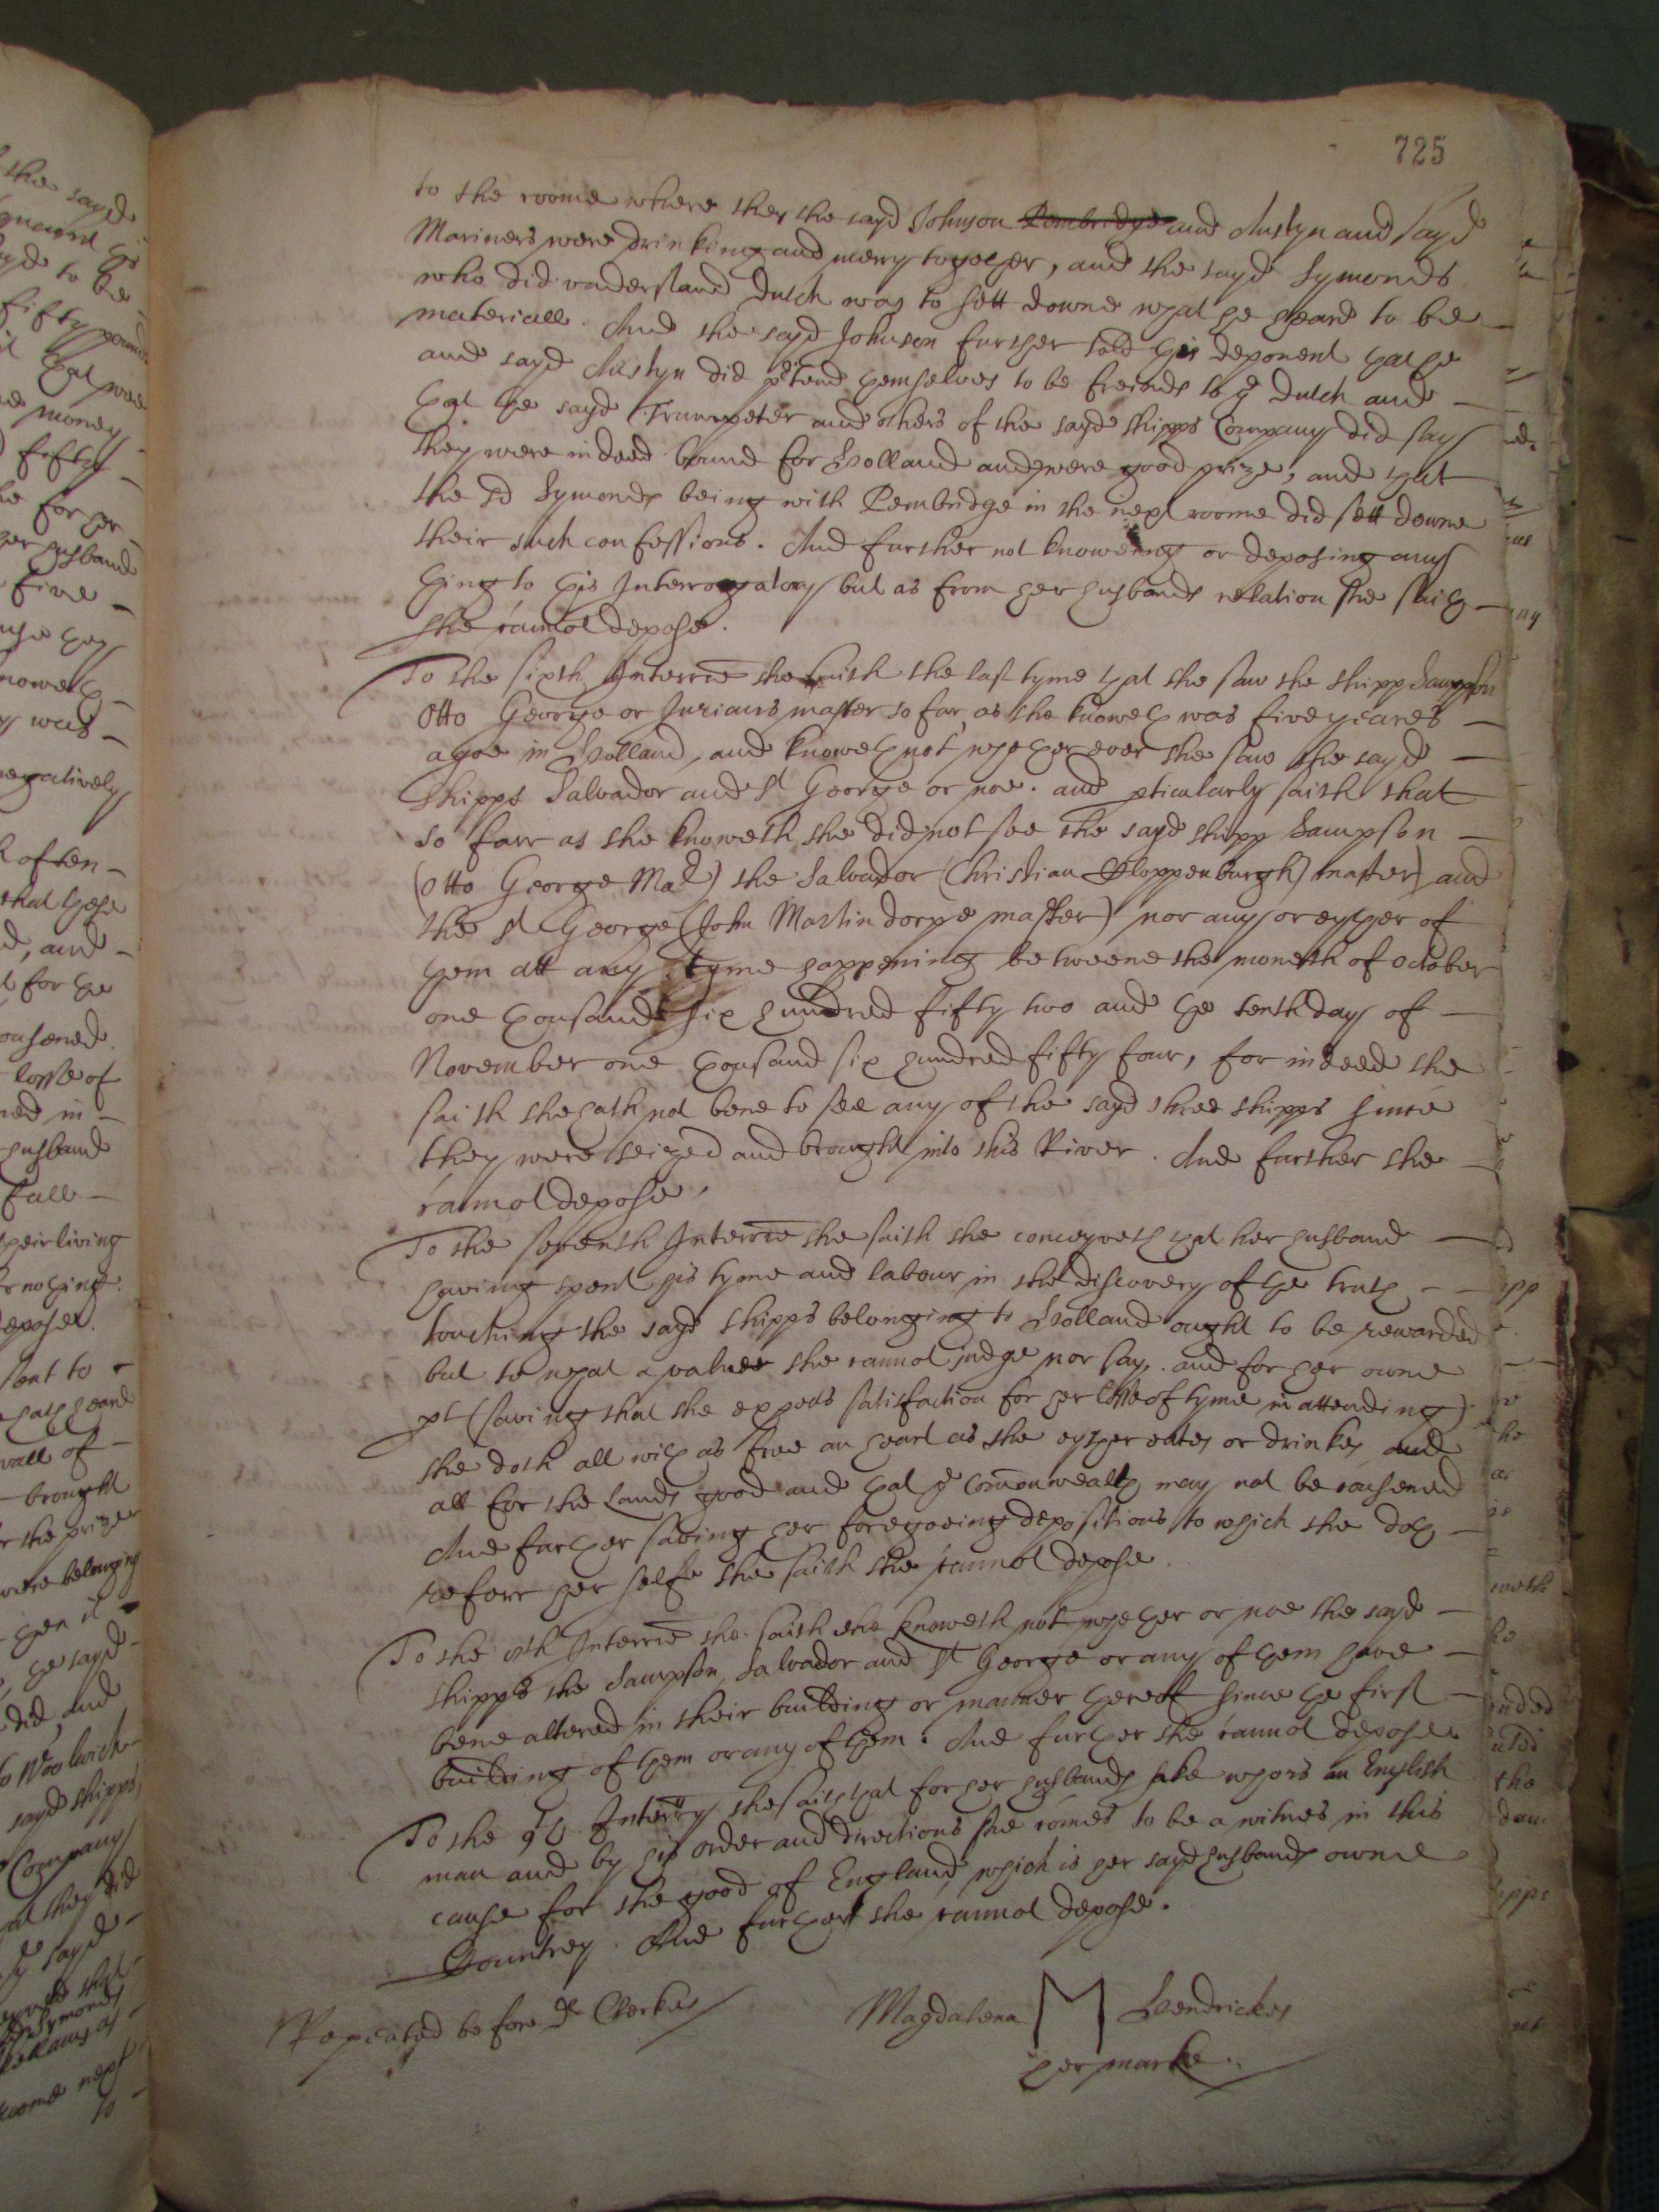 725
to the roome where they the sayd Johnson Pembridge and Austyn and sayd
Mariners were drinking and merry together, and the sayd Symonds
who did vnderstand Dutch was to sett downe what he heard to be
materiall. And the sayd Johnson further told this deponent that he
and sayd Austyn did p'tend themselves to be freinds to ye Dutch and
that the sayd Trumpeter and others of the sayd shipps Company did say
they were indeed bound for Holland and were good prize, and that
the sd Symonds being with Pembridge in the next roome did sett downe
their such confessions. And further not knoweing or deposing any
thing to this Interrogatory but as from her husbands relation she saith
she cannot depose.
To the sixth Interrie she saith the last tyme that she saw the shipp Sampson
Otto George or Jurians master so far as she knoweth was five yeares
agoe in Holland, and knoweth not whether ever she saw the sayd
shipps Salvador and St George or noe. and pticularly saith that
so farr as she knoweth she did not see the sayd shipp Sampson
(Otto George Mar) the Salvador (Christian Cloppenburgh) master) and
the St George (John Martin dorpe master) nor any or eyther of
them att any tyme happening betweene the moneth of October
one thousand six hundred fifty two and the tenth day of
November one thousand six hundred fifty four, for indeed she
saith she hath not bene to see any of the sayd three shipps since
they were seized and brought into this River. And further she
cannot depose.
To the seventh Interrie she saith she conceyveth that her husband
having spent his tyme and labour in the discovery of the truth
touching the sayd shipps belonging to Holland ought to be rewarded
but to what a value she cannot judge nor say. and for her owne
pt (saving that she expects satisfaction for her losse of tyme in attending)
she doth all with as free an heart as she eyther eates or drinkes and
all for the Lands good and that ye Comonwealth may not be cousened
And further saving her foregoeing depositions to which she doth
referr her selfe she saith she cannot depose.
To the 8th Interrie she saith she knoweth not whether or noe the sayd
shipps the Sampson, Salvador and St George or any of them have
bene altered in their building or manner thereof since the first
building of them or any of them. And further she cannot depose
To the 9th Interry she saith that for her husbands sake who is an English
man and by his order and directions she comes to be a witnes in this
cause for the good of England, which is her sayd husbands owne
Countrey. And further she cannot depose.
Repeated before Dr Clerke
Magdalena M Hendrickes
her marke.